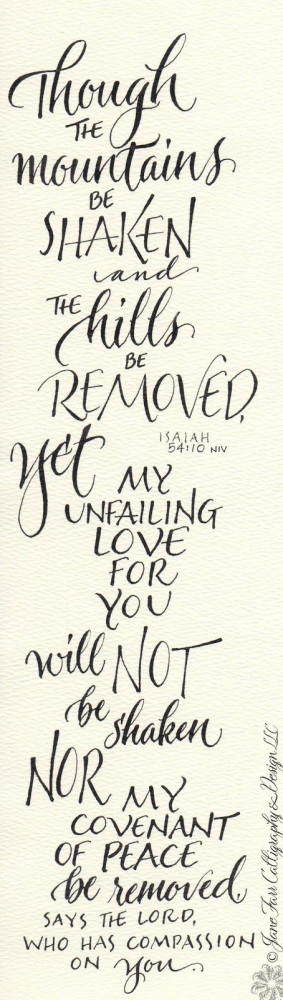 Though
THE
mountains
BE
SHAKEN
and
THE hills
BE
REMOVED,
ISAIAH
54:10 NIV
yet MY
UNFAILING
LOVE
FOR
YOU
will NOT
be shaken
NOR MY
COVENANT
OF PEACE
be removed
SAYS THE LORD,
WHO HAS COMPASSION
ON you.
© Jane Farr Calligraphy & Design LLC